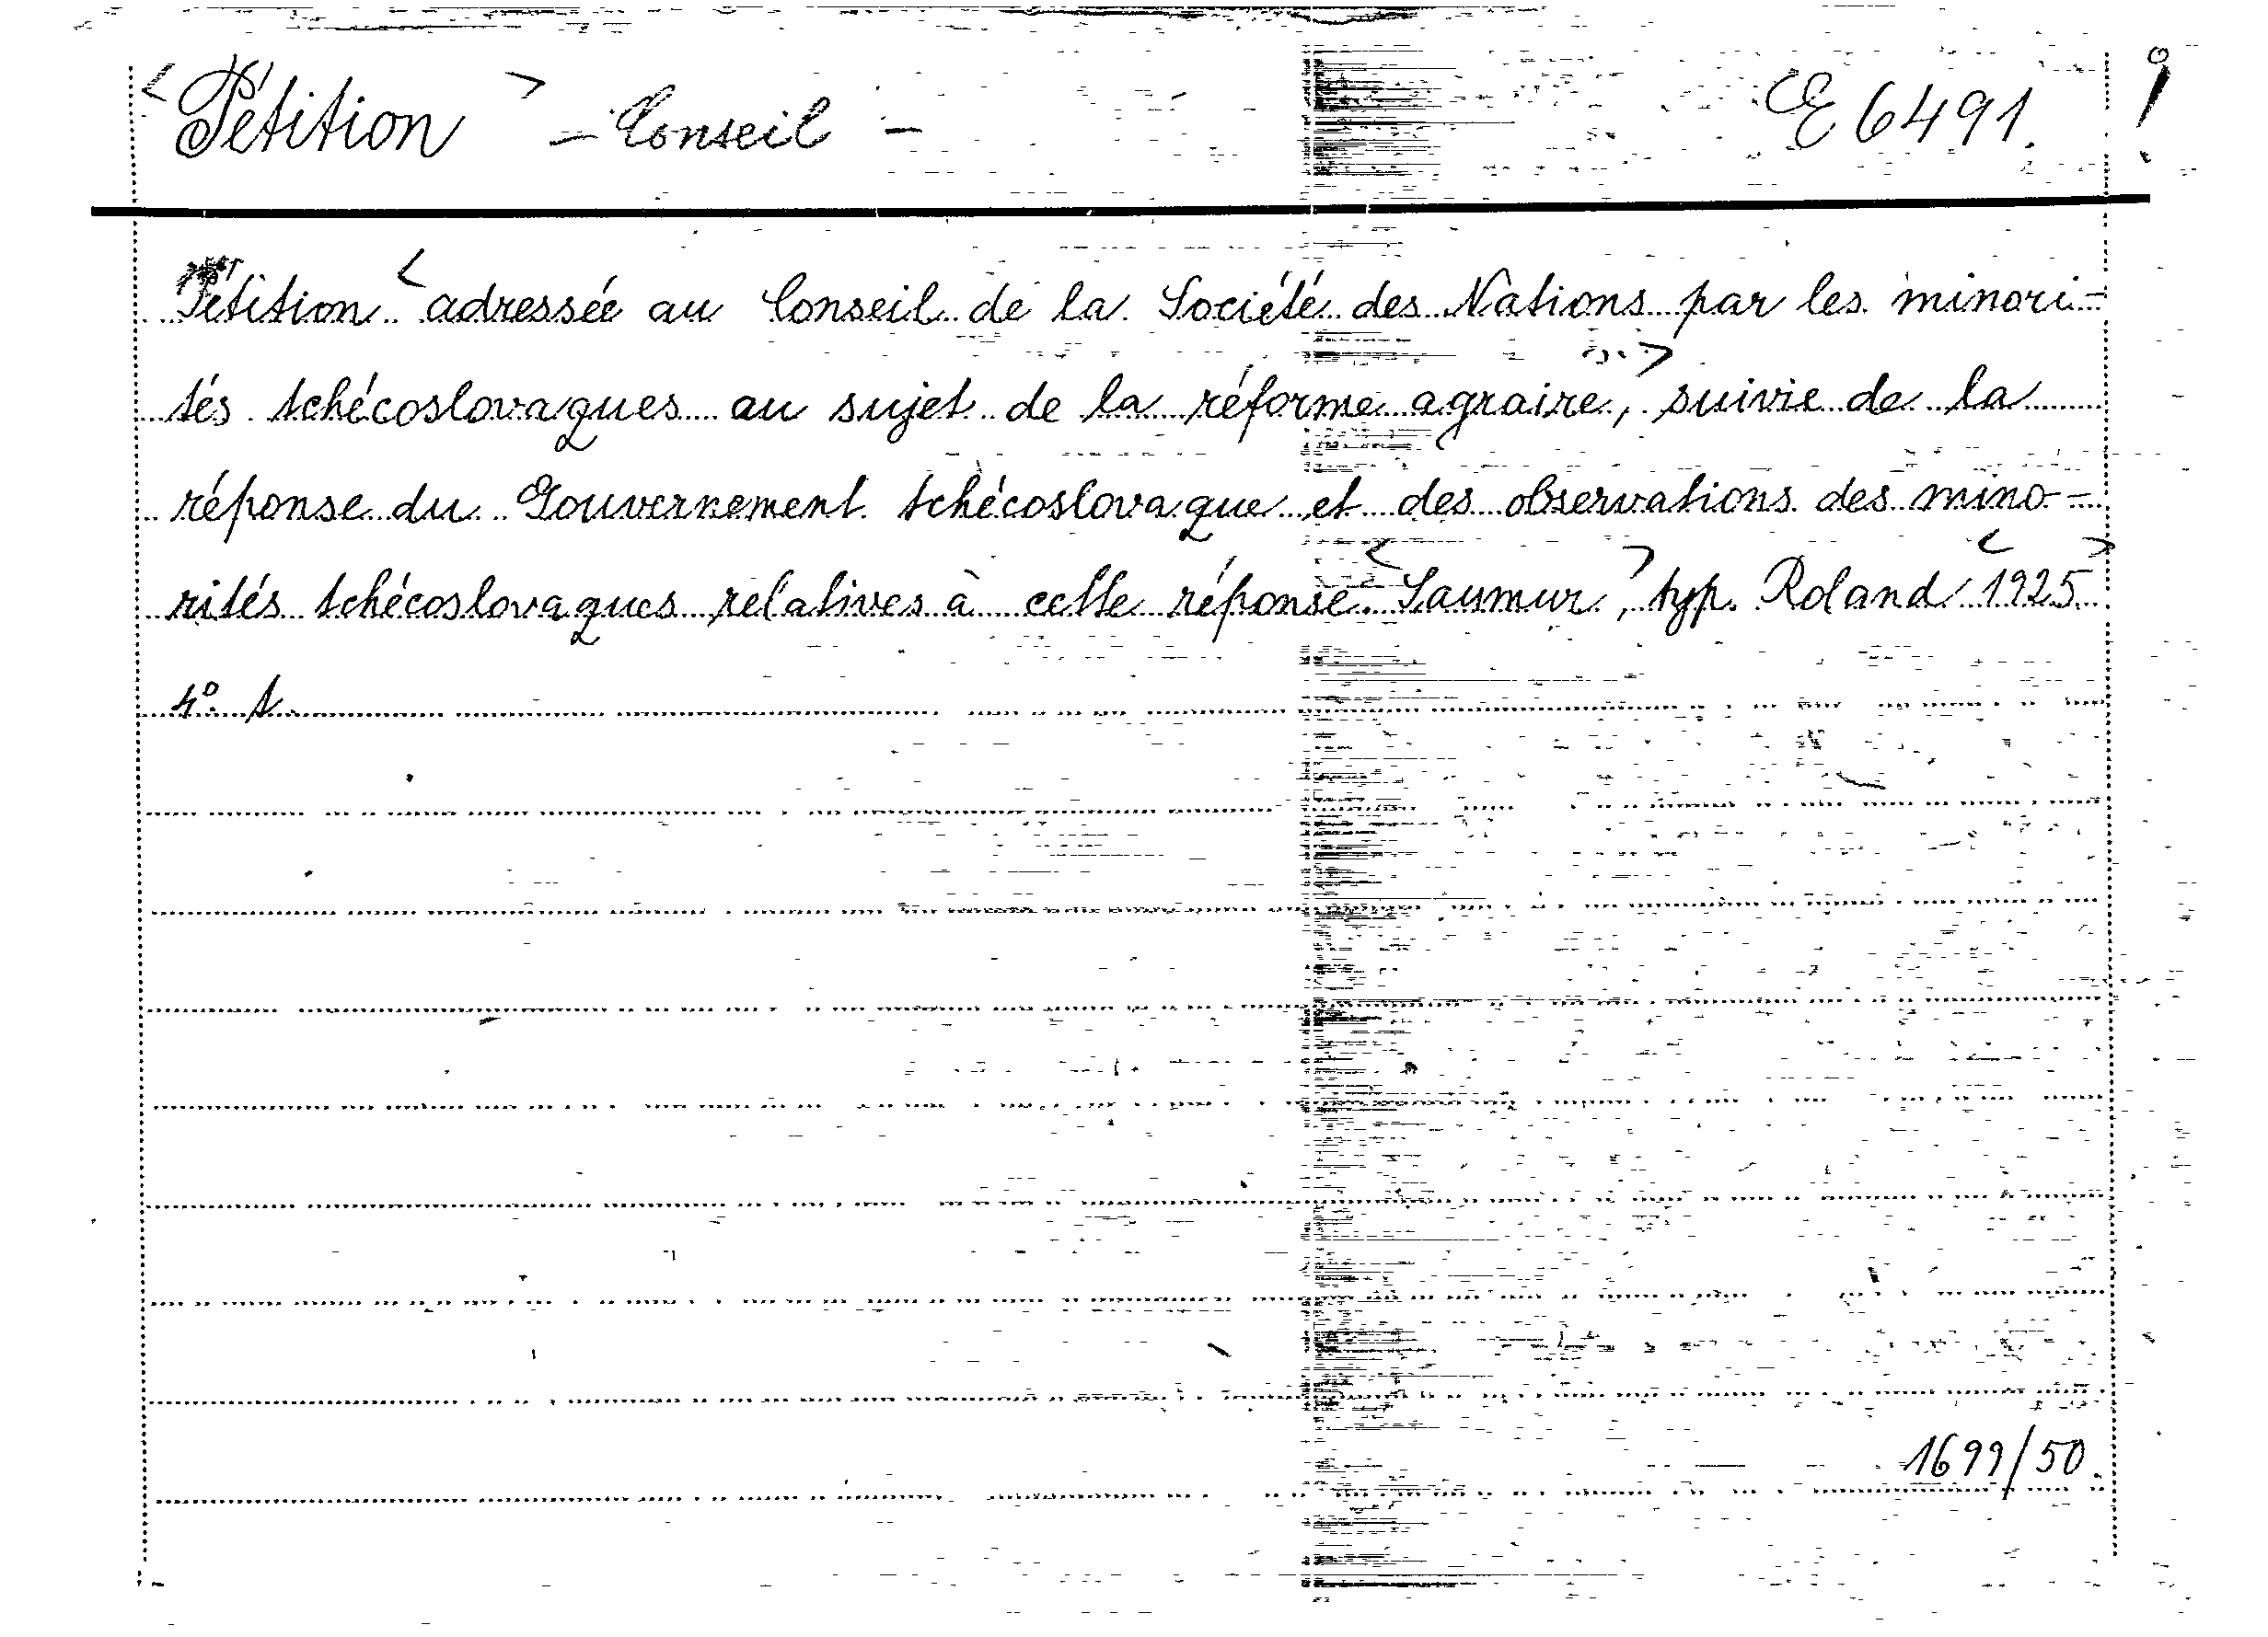 <Pétition> - Conseil - CE 6491.
Pétition <adressée au Conseil de la Société des Nations par les minori-
tés tchécoslovaques au sujet de la réforme agraire,> suivie de la
réponse du Gouvernement tchécoslovaque et des observations des mino-
rités tchécoslovaques relatives à cette réponse. <Saumur>, typ. Roland <1925>
4º.
1699/50.